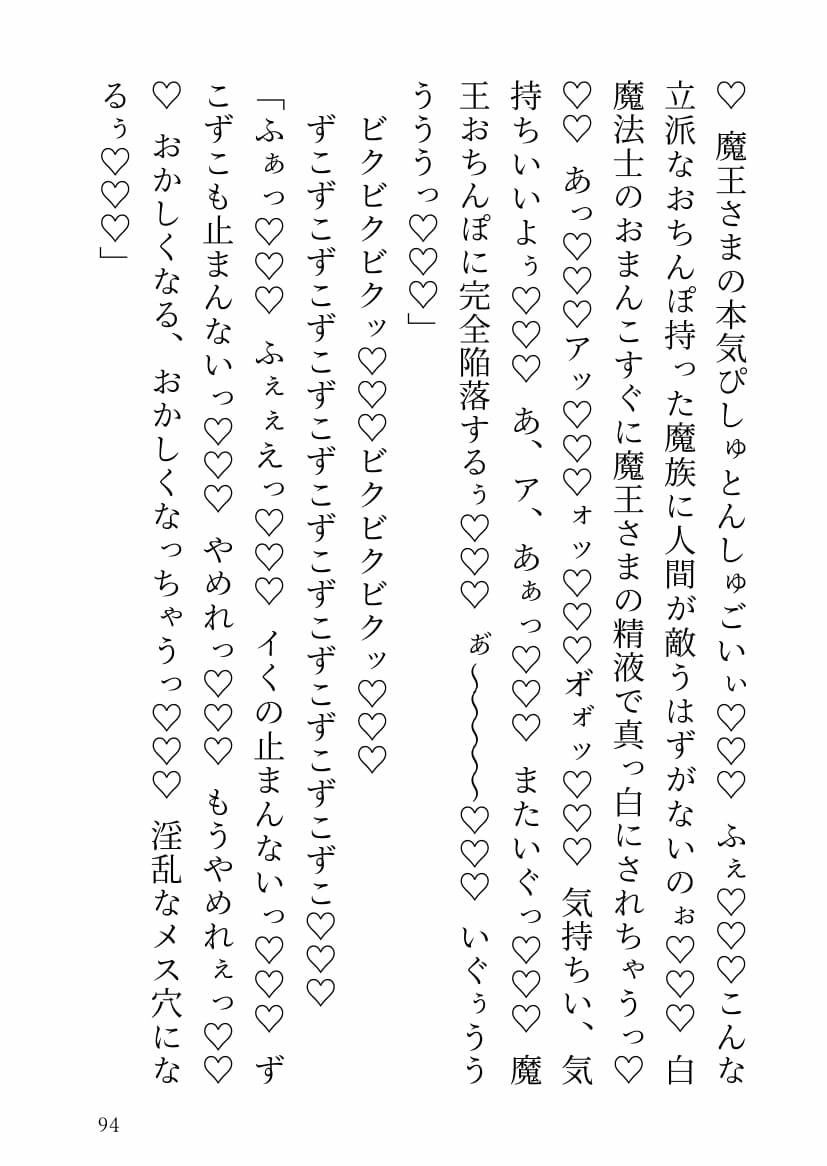 ♡　魔王さまの本気ぴしゅとんしゅごいぃ♡♡♡　ふぇ♡♡♡こんな
立派なおちんぽ持った魔族に人間が敵うはずがないのぉ♡♡♡　白
魔法士のおまんこすぐに魔王さまの精液で真っ白にされちゃうっ♡
♡♡　あっ♡♡♡アッ♡♡♡ォッ♡♡♡オ゛ォ゛ッ♡♡♡　気持ちい、気
持ちいいよぅ♡♡♡　あ、ア、あぁっ♡♡♡　またいぐっ♡♡♡　魔
王おちんぽに完全陥落するぅ♡♡♡　ぉ゛〜〜〜〜〜♡♡♡　いぐぅうう
うううっ♡♡♡」
ビクビクビクッ♡♡♡ビクビクビクッ♡♡♡
ずこずこずこずこずこずこずこずこずこずこずこずこ♡♡♡
「ふぁっ♡♡♡　ふぇぇえっ♡♡♡　イくの止まんないっ♡♡♡　ず
こずこも止まんないっ♡♡♡　やめれっ♡♡♡　もうやめれぇっ♡♡
♡　おかしくなる、おかしくなっちゃうっ♡♡♡　淫乱なメス穴にな
るぅ♡♡♡」
94